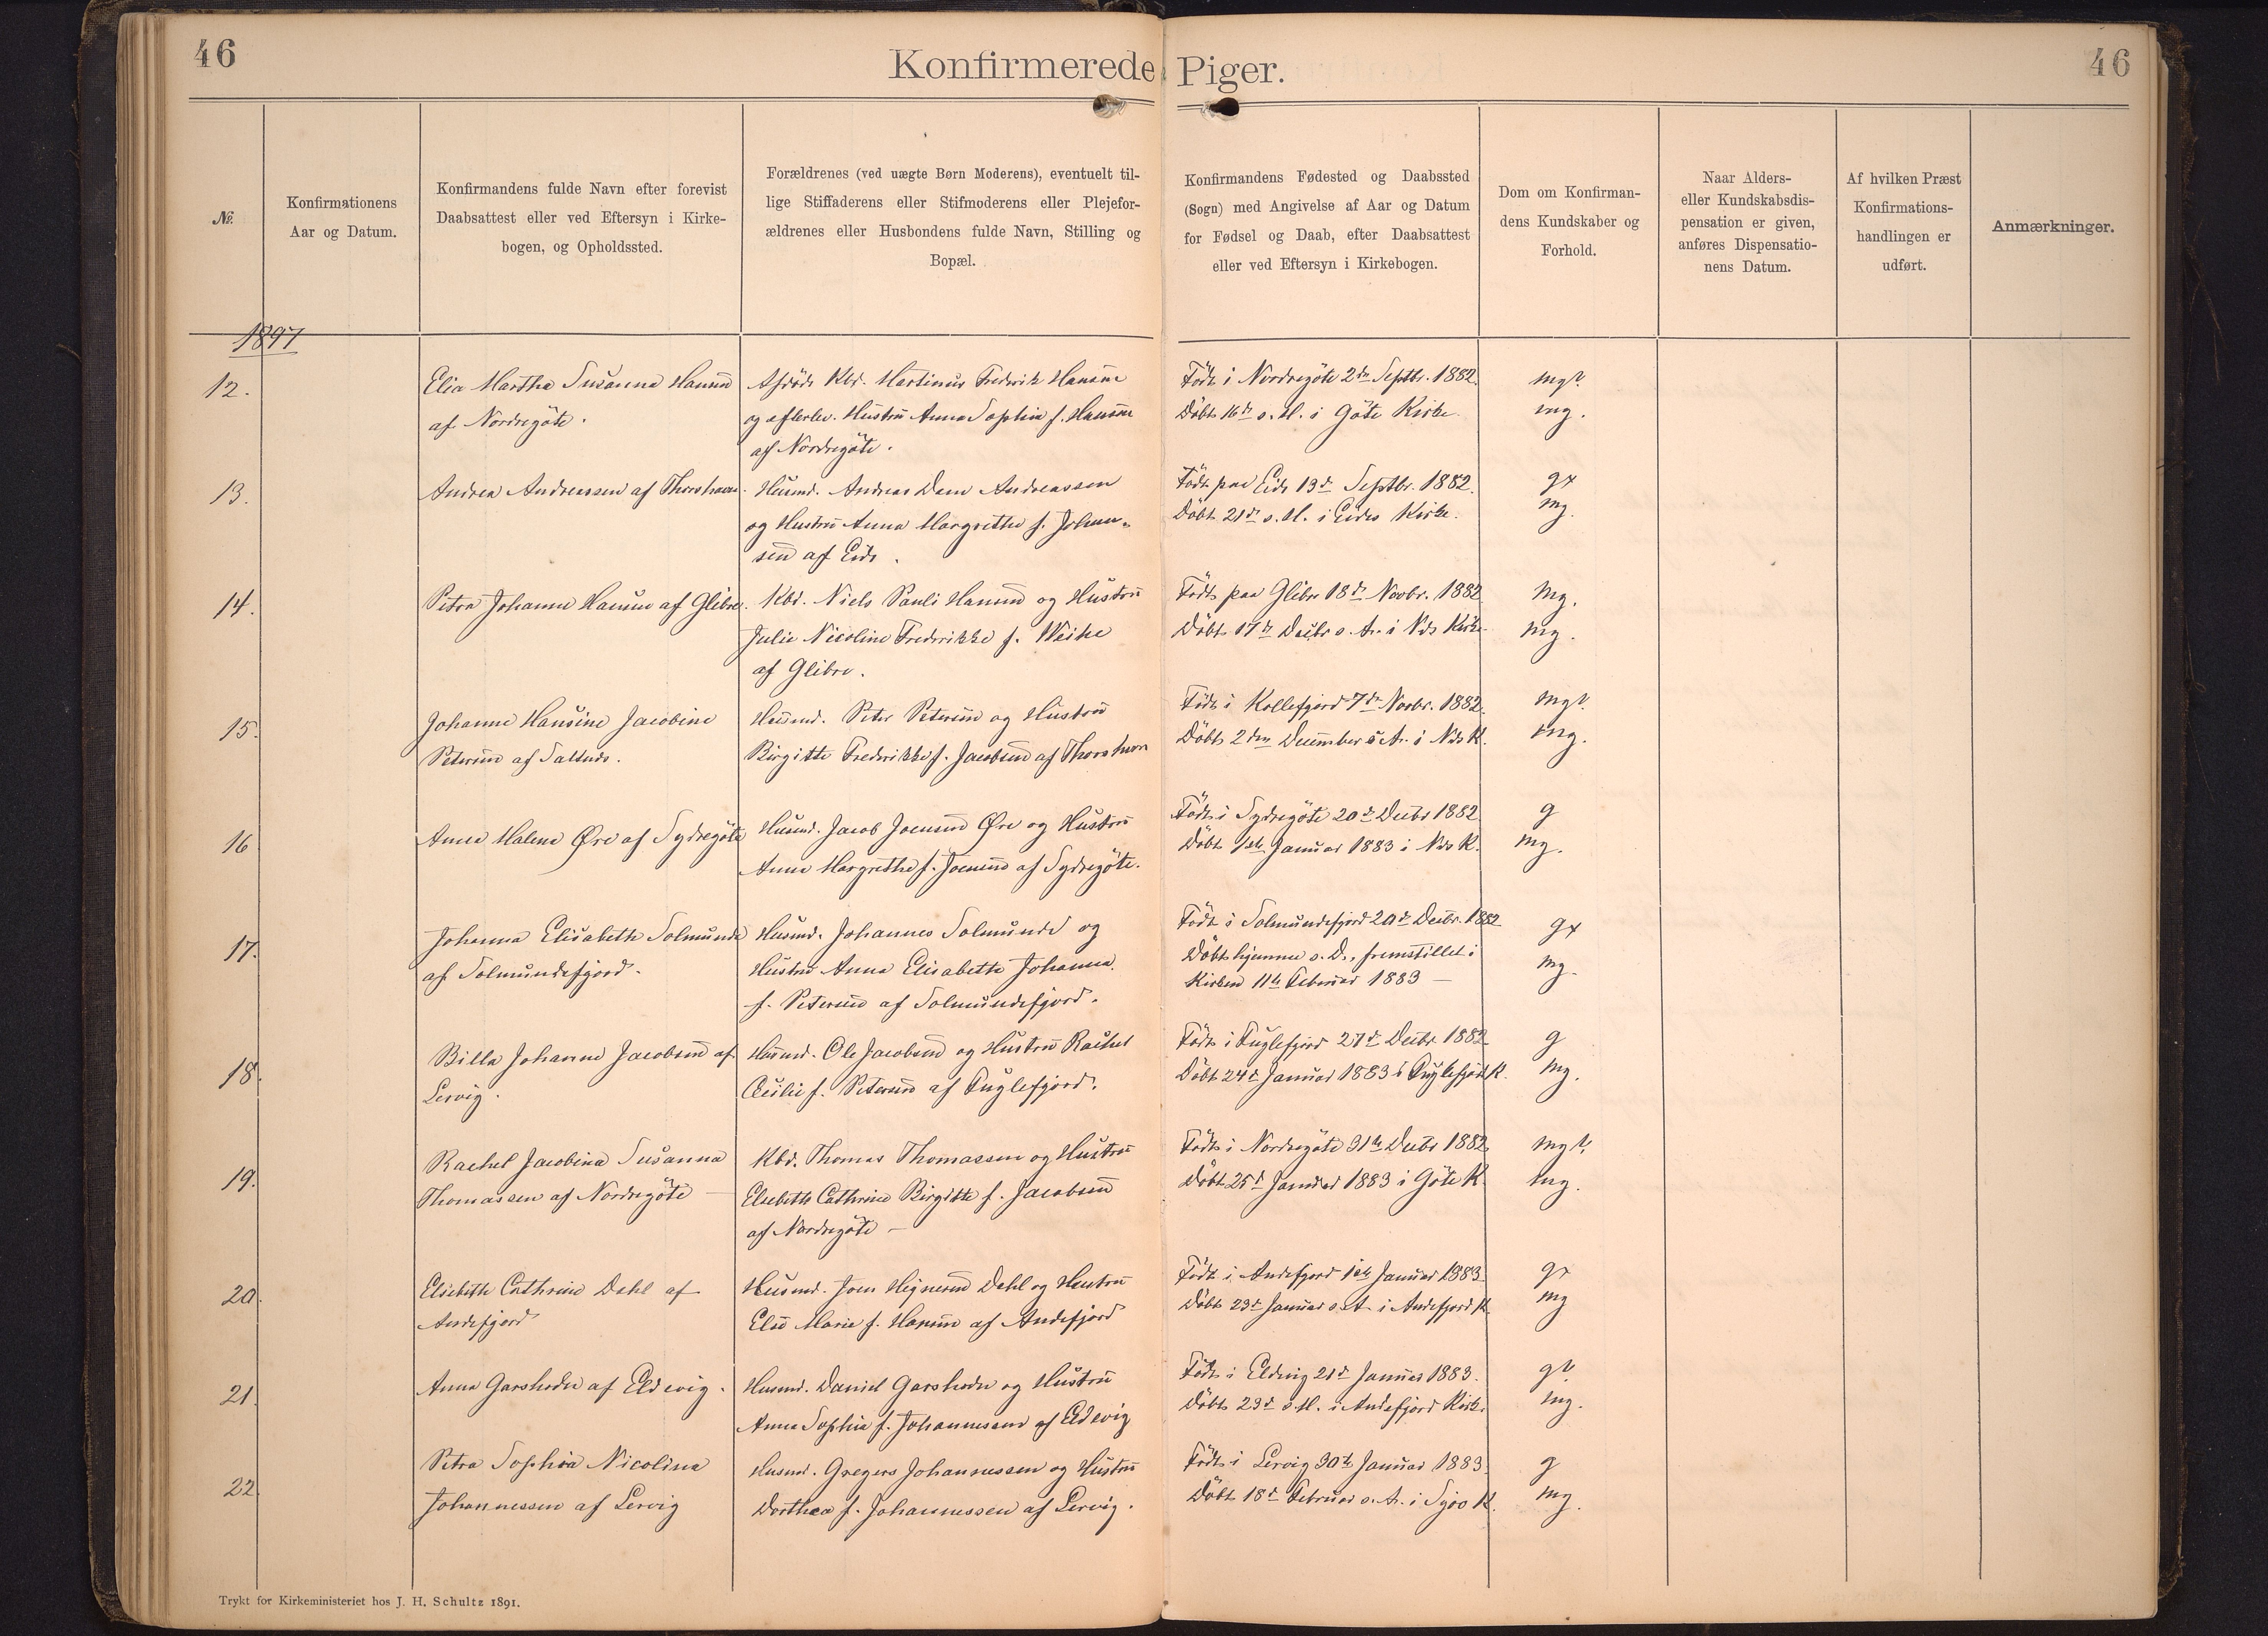 46
Konfirmerede Piger.
46
№.
Konfirmationens
Aar og Datum.
Konfirmandens fulde Navn efter forevist
Daabsattest eller ved Eftersyn i Kirke-
bogen, og Opholdssted.
Forældrenes (ved uægte Børn Moderens), eventuelt til-
lige Stiffaderens eller Stifmoderens eller Plejefor-
ældrenes eller Husbondens fulde Navn, Stilling og
Bopæl.
Konfirmandens Fødested og Daabssted
(Sogn) med Angivelse af Aar og Datum
for Fødsel og Daab, efter Daabsattest
eller ved Eftersyn i Kirkebogen.
Dom om Konfirman-
dens Kundskaber og
Forhold.
Naar Alders-
eller Kundskabsdis-
pensation er given,
anføres Dispensatio-
nens Datum.
Af hvilken Præst
Konfirmations-
handlingen er
udført.
Anmærkninger.
1897
12.
Elia Martha Susanna Hansen
af Nordregöte.
Afdøde Kbd. Martinus Frederik Hansen
og efterlev. Hustru Anna Sophia f. Hansen
af Nordregöte.
Födt i Nordregöte 2den Septbr. 1882.
Döbt 16de s. M. i Göte Kirke.
mg?
mg.
13.
Andrea Andreassen af Thorshavn.
Husmd. Andreas Dam Andreassen
og Hustru Anna Margrethe f. Johan-
sen af Eide.
Födt paa Eide 13de Septbr. 1882.
Döbt 21de s. M. i Eides Kirke.
g×
mg.
14.
Petra Johanne Hansen af Glibre.
Kbd. Niels Pauli Hansen og Hustru
Julie Nicoline Frederikke f. Weihe
af Glibre.
Födt paa Glibre 18de Novbr. 1882
Döbt 17de Decbr s. A. i Nds Kirke
Mg.
mg.
15.
Johanne Hansine Jacobine
Petersen af Saltnæs.
Husmd. Peter Petersen og Hustru
Birgitte Frederikke f. Jacobsen af Thorshavn
Födt i Kollefjord 7de Novbr. 1882.
Döbt 2den December s. A. i Nds K.
mg?
mg.
16
Anna Malene Øre af Sydregöte
Husmd. Jacob Joensen Øre og Hustru
Anna Margrethe f. Joensen af Sydregöte.
Födt i Sydregöte 20de Decbr 1882
Döbt 1ste Januar 1883 i Nds K.
g
mg.
17.
Johanna Elisabeth Solmunde
af Solmundefjord.
Husmd. Johannes Solmunde og
Hustru Anna Elisabeth Johanna
f. Petersen af Solmundefjord.
Födt i Solmundefjord 20de Decbr. 1882
Döbt hjemme s. D., fremstillet i
Kirken 11te Februar 1883 —
g×
mg.
18.
Billa Johanne Jacobsen af
Lervig.
Husmd. Ole Jacobsen og Hustru Rachel
Cecilie f. Petersen af Fuglefjord.
Födt i Fuglefjord 27de Decbr 1882
Döbt 24de Januar 1883 i Fuglefjord K.
g
mg.
19.
Rachel Jacobina Susanna
Thomassen af Nordregöte —
Kbd. Thomas Thomassen og Hustru
Elsebeth Cathrine Birgitte f. Jacobsen
af Nordregöte —
Födt i Nordregöte 31te Decbr 1882
Döbt 25de Januar 1883 i Göte K
mg?
mg.
20.
Elsebeth Cathrine Dahl af
Andefjord
Husmd. Joen Hejnesen Dahl og Hustru
Else Marie f. Hansen af Andefjord
Födt i Andefjord 1ste Januar 1883.
Döbt 23de Januar s. A. i Andefjord K.
g×
mg
21.
Anna Garshodn af Eldevig.
Husmd. Daniel Garshodn og Hustru
Anna Sophia f. Johannesen af Eldevig
Födt i Eldevig 21de Januar 1883.
Döbt 23de s. M. i Andefjord Kirke.
g?
mg.
22.
Petra Sophia Nicolina
Johannessen af Lervig
Husmd. Gregers Johannessen og Hustru
Dorthea f. Johannessen af Lervig.
Födt i Lervig 30te Januar 1883.
Döbt 18de Februar s. A. i Sjov K.
g
mg.
Trykt for Kirkeministeriet hos J. H. Schultz 1891.